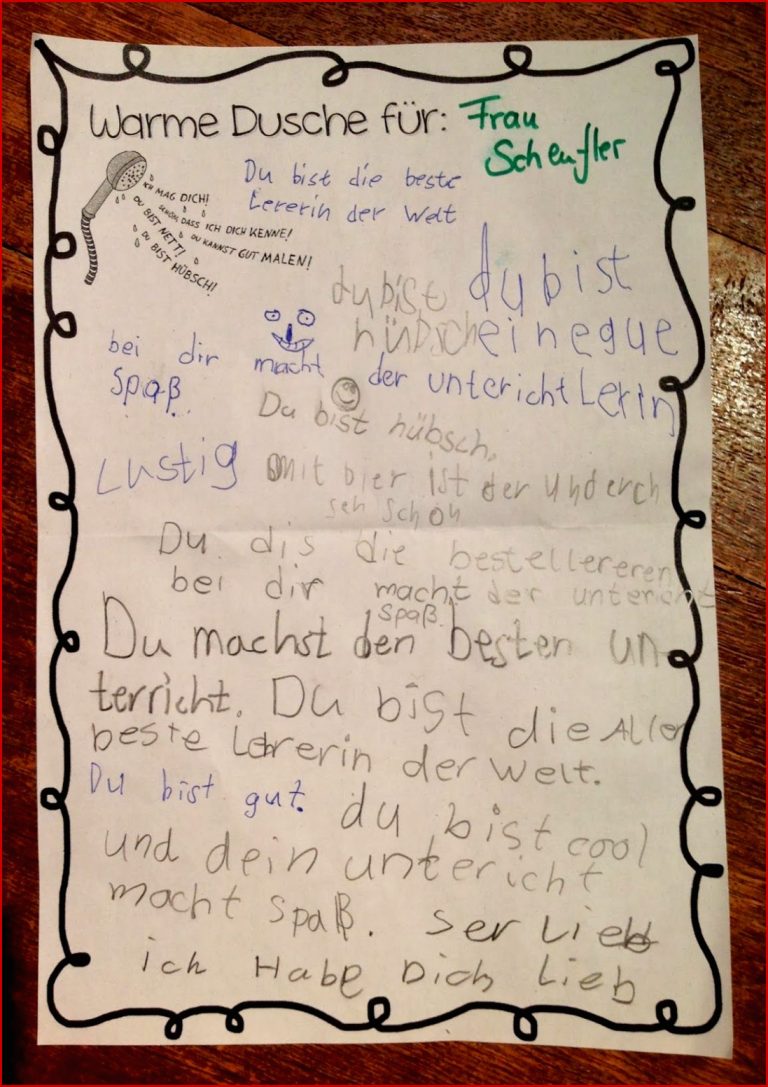 Warme Dusche für: Frau
Scheufler
Du bist die beste
Lererin der Welt
ICH MAG DICH!
SCHÖN, DASS ICH DICH KENNE!
DU BIST NETT!
DU KANNST GUT MALEN!
DU BIST HÜBSCH!
du bist
hünbsch
du bist
eine gue
Lerin
bei dir macht der untericht
Spaß
Du bist hübsch.
Lustig
mit bier ist der underch
seh schön
Du dis die bestellereren
bei dir macht der untericht
spaß
Du machst den besten un-
terricht. Du bist die Aller
beste Lererin der Welt.
Du bist gut. du bist cool
und dein untericht
macht spaß. Ser Lieb
ich Habe Dich Lieb